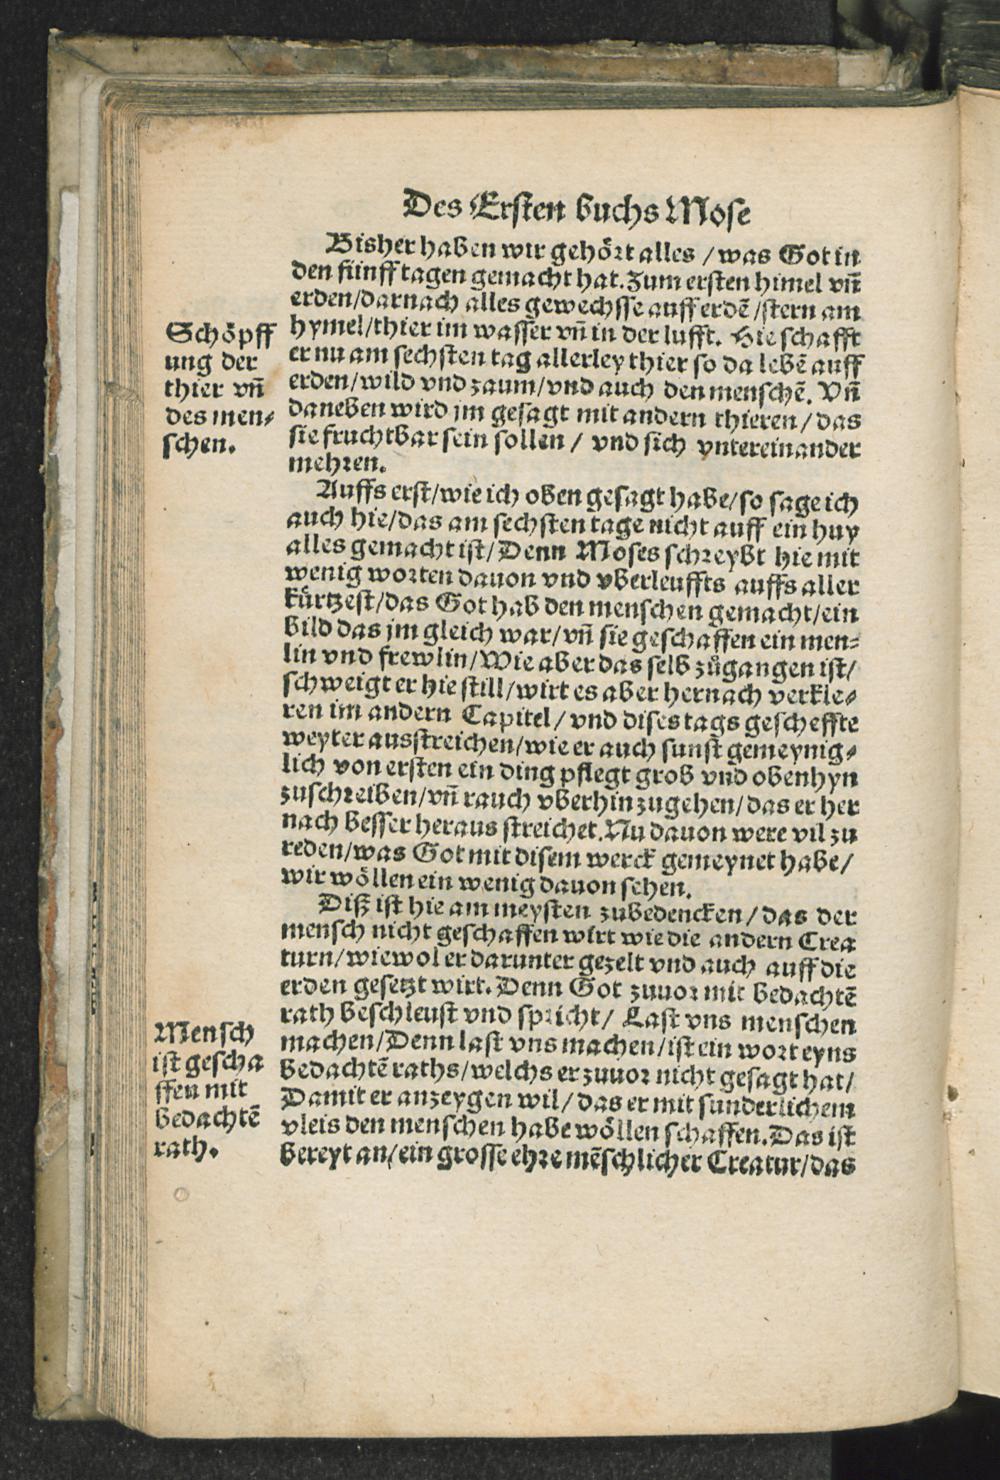 Des Ersten buchs Mose
Bisher haben wir gehört alles / was Got in
den fünff tagen gemacht hat. Zum ersten himel vñ
erden/darnach alles gewechsse auff erdẽ /stern am
hymel/thier im wasser vñ in der lufft. Hie schafft
er nu am sechsten tag allerley thier so da lebẽ auff
erden/wild vnd zaum/vnd auch den menschẽ. Vñ
daneben wird jm gesagt mit andern thieren / das
sie fruchtbar sein sollen / vnd sich vntereinander
mehren.
Schöpff
ung der
thier vñ
des men-
schen.
Auffs erst/wie ich oben gesagt habe/so sage ich
auch hie/das am sechsten tage nicht auff ein huy
alles gemacht ist/Denn Moses schreybt hie mit
wenig worten dauon vnd vberleuffts auffs aller
kürtzest/das Got hab den menschen gemacht/ein
bild das jm gleich war/vñ sie geschaffen ein men-
lin vnd frewlin/Wie aber das selb zůgangen ist/
schweigt er hie still/wirt es aber hernach verkle-
ren im andern Capitel / vnd dises tags gescheffte
weyter ausstreichen/wie er auch sunst gemeynig-
lich von ersten ein ding pflegt grob vnd obenhyn
zuschreiben/vñ rauch vberhin zugehen/das er her
nach besser heraus streichet. Nu dauon were vil zu
reden/was Got mit disem werck gemeynet habe/
wir wöllen ein wenig dauon sehen.
Diß ist hie am meysten zubedencken / das der
mensch nicht geschaffen wirt wie die andern Crea
turn/wiewol er darunter gezelt vnd auch auff die
erden gesetzt wirt. Denn Got zuuor mit bedachtẽ
rath beschleust vnd spricht/ Last vns menschen
machen/Denn last vns machen/ist ein wort eyns
bedachtẽ raths/welchs er zuuor nicht gesagt hat/
Damit er anzeygen wil/ das er mit sunderlichem
vleis den menschen habe wöllen schaffen. Das ist
bereyt an/ein grosse ehre mẽschlicher Creatur/das
Mensch
ist gescha
ffen mit
bedachtẽ
rath.